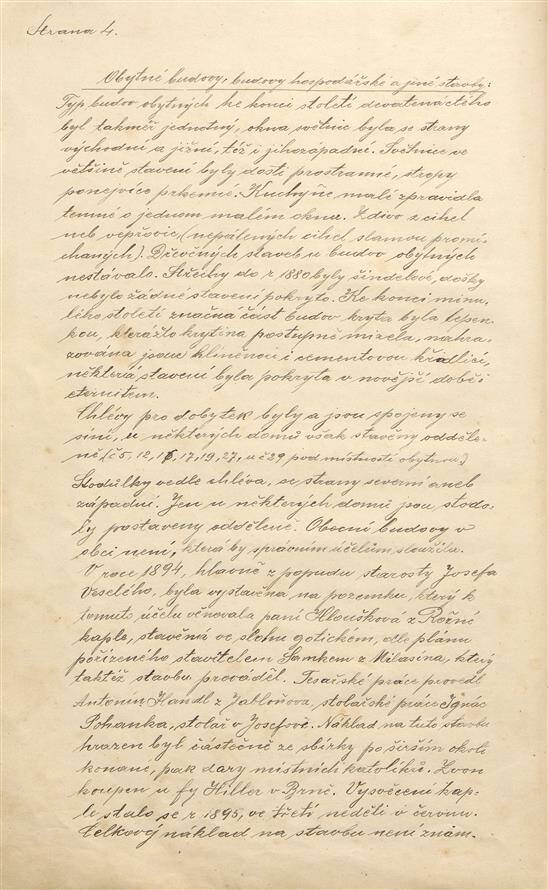 Strana 4.
Obytné budovy, budovy hospodářské a jiné stavby:
Typ budov obytných ke konci století devatenáctého
byl takměř jednotný, okna světnic byla se strany
východní a jižní, též i jihozápadné. Světnice ve
většině stavení byly dosti prostranné, stropy
ponejvíce prkenné. Kuchyňe malé zpravidla
temné o jednom malém oknu. Zdivo z cihel
neb vepřovic, (nepálených cihel slamou promí-
chaných). Dřevěných staveb u budov obytných
nestávalo. Střechy do r 1880 byly šindelové, došky
nebylo žádné stavení pokryto. Ke konci minu-
lého století značná část budov kryta byla lepen-
kou, kterážto krytina postupně mizela, nahra-
zována jsouc hliněnou i cementovou křidlicí,
některá stavení byla pokryta v novější době i
eternitem.
Chlévy pro dobytek byly a jsou spojeny se
síní, u některých domů však stavěny odděle-
ně (č 5, 12, 17, 19, 27, u č 29 pod místností obytnou)
Stodůlky vedle chléva, se strany severní aneb
západní. Jen u některých domů jsou stodo-
ly postaveny odděleně. Obecní budovy v
obci není, která by správním účelům sloužila.
V roce 1894, hlavně z popudu starosty Josefa
Veselého, byla vystavěna na pozemku, který k
tomuto účelu věnovala paní Hloušková z
kaple, stavěná ve slohu gotickém, dle plánu
pořízeného stavitelem z Milasína, který
taktéž stavbu prováděl. Tesařské práce provedl
Antonín Handl z Jabloňova, stolařské práce Ignác
Pohanka, stolař v Josefově. Náklad na tuto stavbu
hrazen byl částečně ze sbírky po širším okolí
konané, pak dary místních katolíků. Zvon
koupen u fy Hiller v Brně. Vysvěcení kap-
le stalo se r 1895, ve třetí neděli v červnu.
Celkový náklad na stavbu není znám.